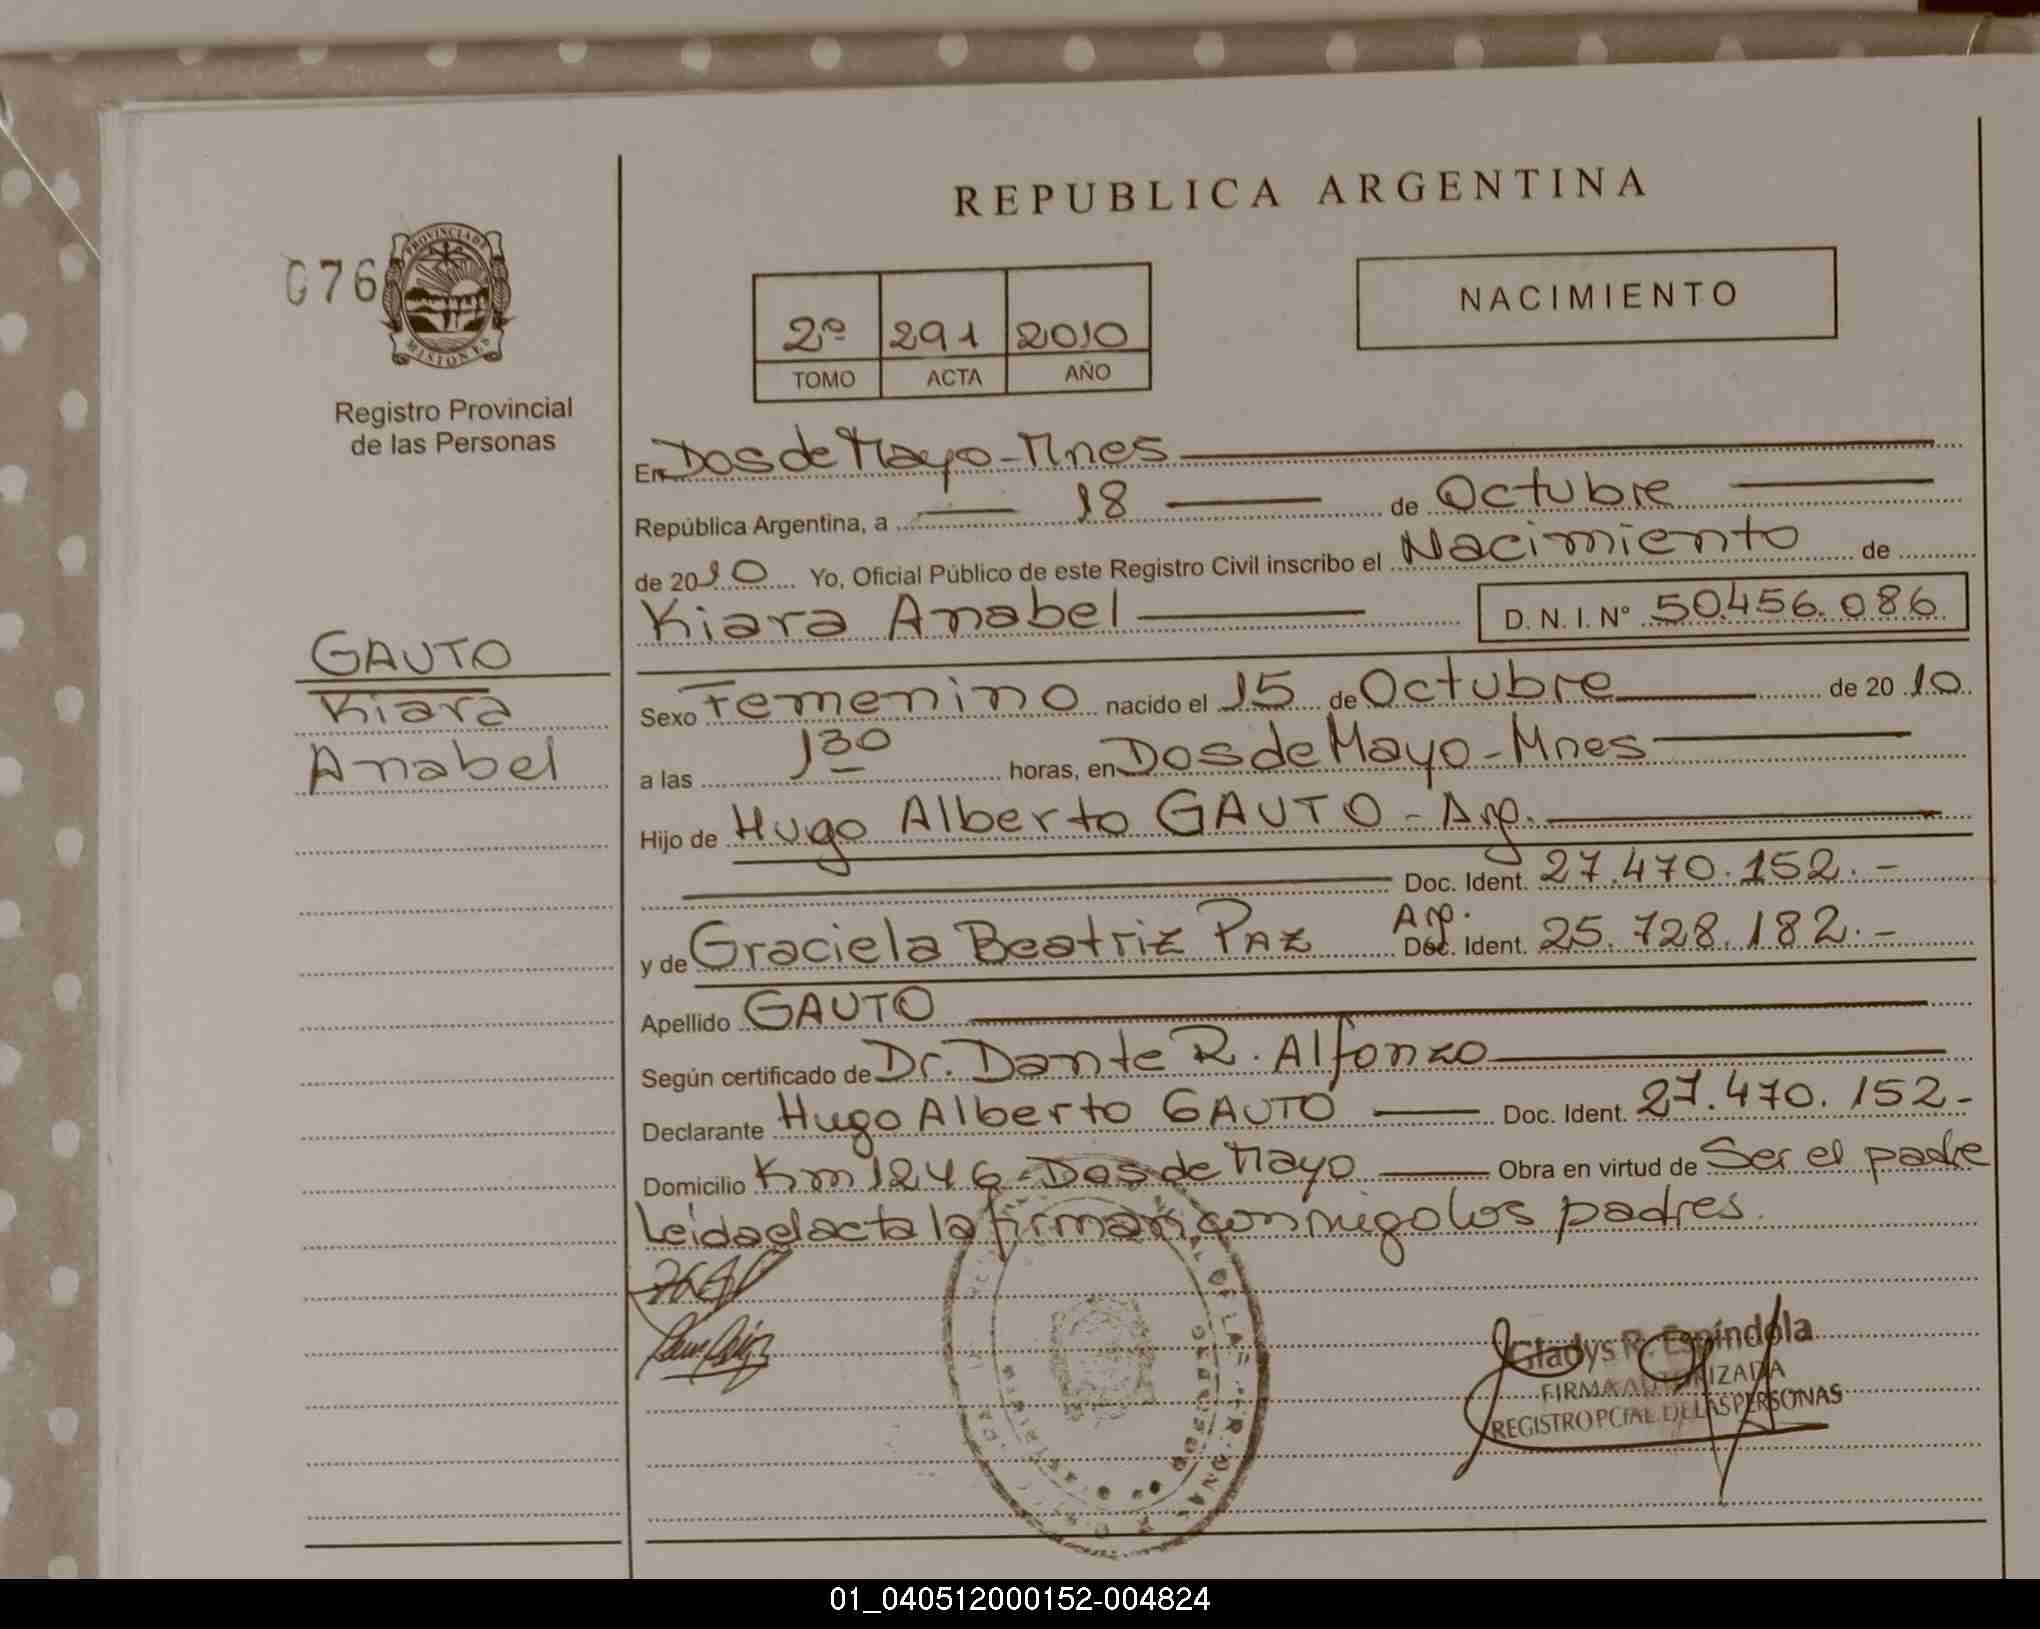 REPUBLICA ARGENTINA
076
PROVINCIA DE
MISIONES
Registro Provincial
de las Personas
2º 291 2010
TOMO ACTA AÑO
NACIMIENTO
En Dos de Mayo - Mnes
República Argentina, a 18 de Octubre
de 2010 Yo, Oficial Público de este Registro Civil inscribo el Nacimiento de
Kiara Anabel D. N. I. Nº 50.456.086
GAUTO
Kiara
Anabel
Sexo Femenino nacido el 15 de Octubre de 2010
a las 1 30 horas, en Dos de Mayo - Mnes
Hijo de Hugo Alberto GAUTO - Arg.
Doc. Ident. 27.470.152.-
y de Graciela Beatriz PAZ Arg. Doc. Ident. 25.728.182.-
Apellido GAUTO
Según certificado de Dr. Dante R. Alfonzo
Declarante Hugo Alberto GAUTO Doc. Ident. 27.470.152-
Domicilio Km 1246 - Dos de Mayo Obra en virtud de Ser el padre
Leida el acta la firman conmigo los padres.
Gladys R. Espíndola
FIRMA AUTORIZADA
REGISTRO PCIAL. DE LAS PERSONAS
01_040512000152-004824